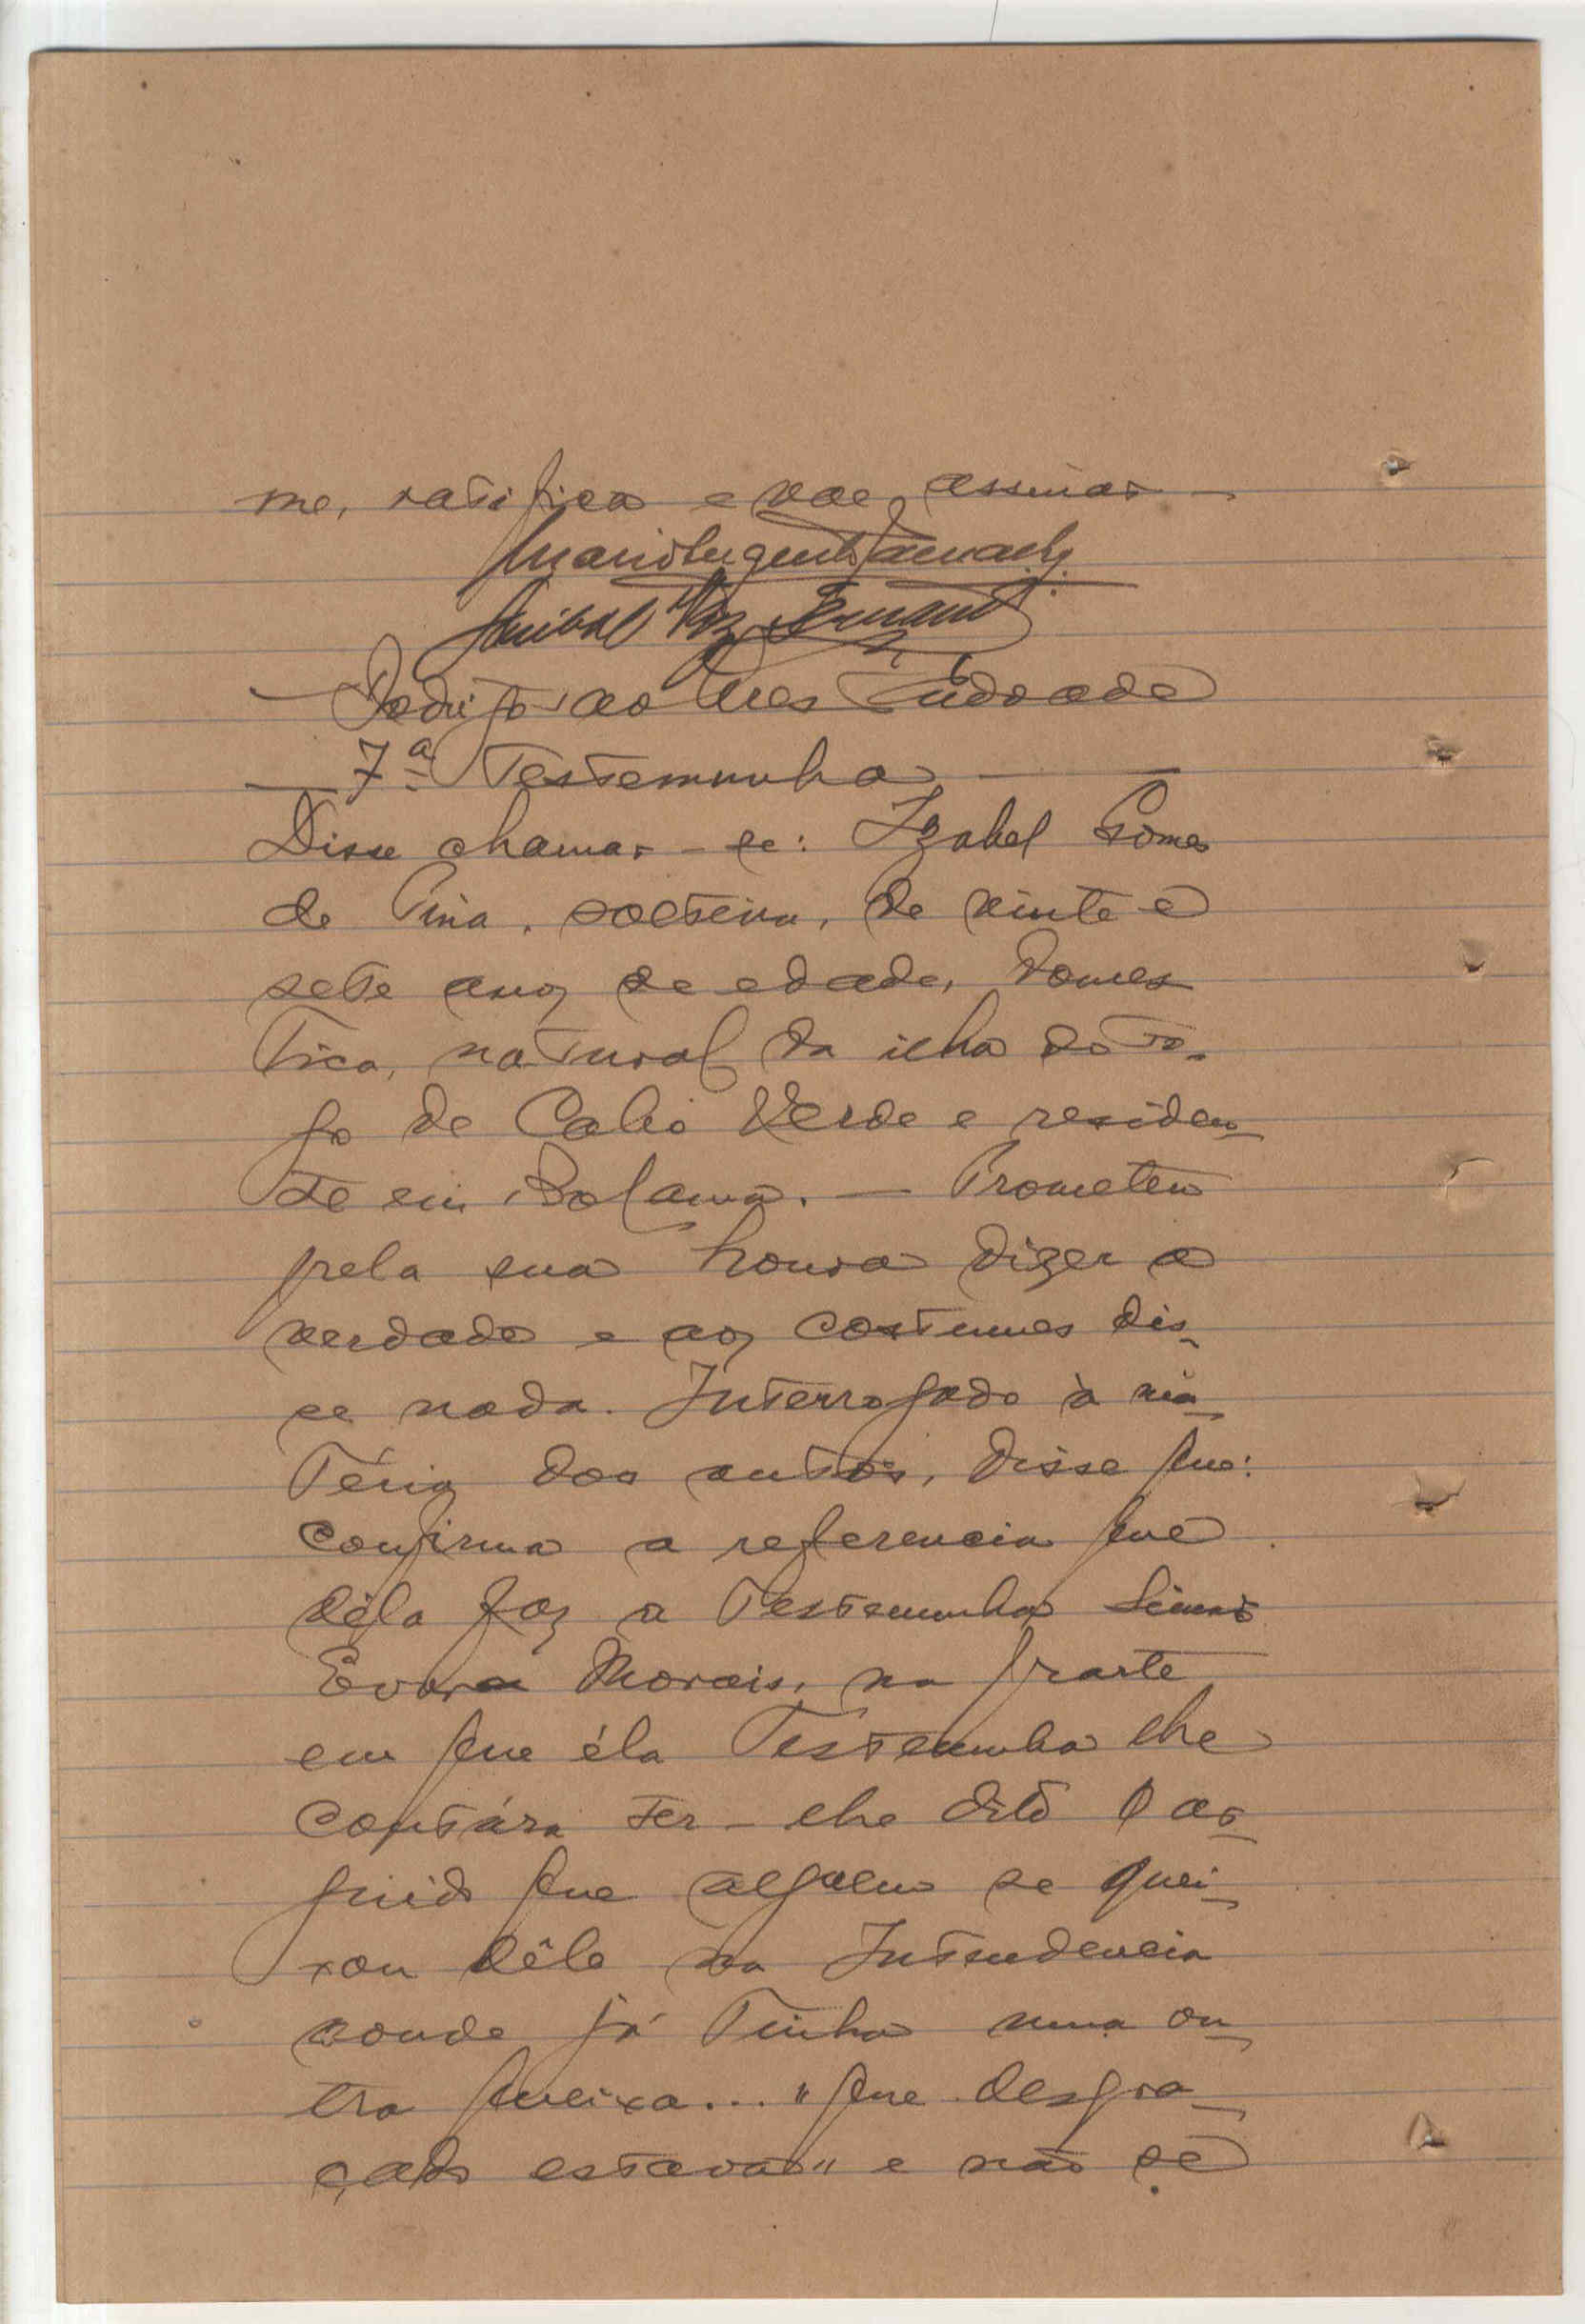 me, ratifica e vae assinar —
Anibal Vaz
— Rodrigo
— 7ª Testemunha —
Disse chamar-se: Izabel Gomes
de Pina, solteira, de vinte e
sete anos de edade, domes
tica, natural da ilha do Fo-
go de Cabo Verde e residen-
te em Bolama. — Prometeu
pela sua honra dizer a
verdade e aos costumes dis-
se nada. Interrogado à ma-
téria dos autos, disse que:
confirma a referencia que
déla faz a testemunha
Evora Morais, na parte
em que éla testemunha lhe
contára ter-lhe dito o ar-
guido que alguem se quei-
xou dêle na Intendencia
aonde já tinha uma ou-
tra queixa... "que desgra-
çado estava" e não se